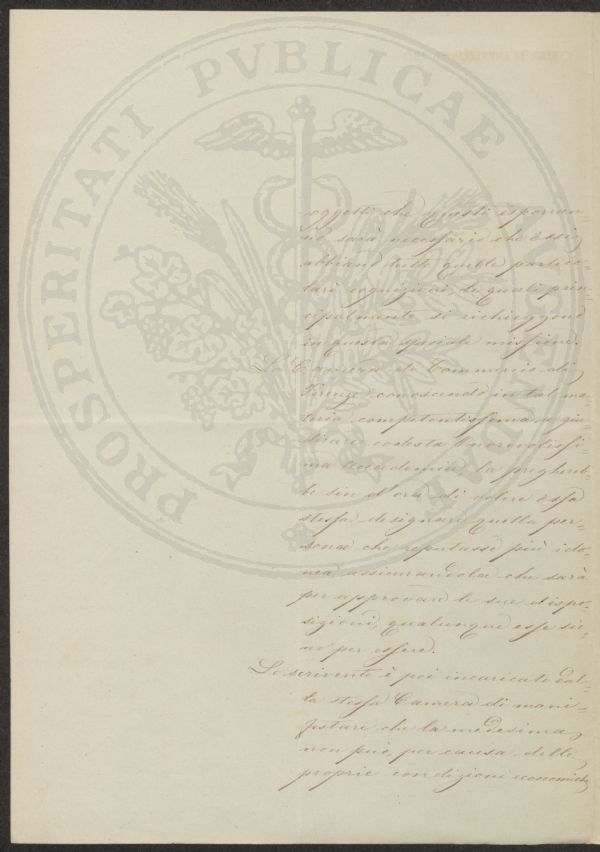 PROSPERITATI PVBLICAE AVGENDAE
oggetti che questi esporran-
no sarà necessario che essi
abbiano tutte quelle partico-
lari cognizioni, le quali prin-
cipalmente si richieggono
in questa speciale missione.
La Camera di Commercio di
Firenze conoscendo in tal ma-
teria competentissima a giu-
dicare codesta Onorevolissi-
ma Accademia la pregereb-
be sin d'ora di volere essa
stessa designare quella per-
sona che reputasse più ido-
nea assicurandola che sarà
per approvare le sue dispo-
sizioni, qualunque esse sie-
no per essere.
Lo scrivente è poi incaricato dal-
la stessa Camera di mani-
festare che la medesima,
non può, per causa delle
proprie condizioni economiche